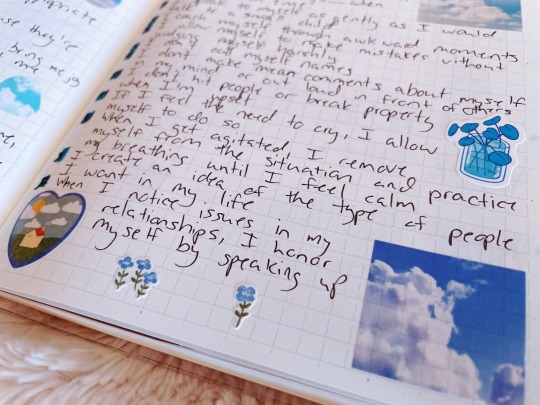 bring me joy
me
when
myself as gently as I would
a small child
myself through awkward moments
I allow myself to make mistakes without
judging myself harshly
I don't call myself names
I don't make mean comments about myself
my mind or out loud in front of others
I don't hit people or break property
when I'm upset
If I feel the need to cry, I allow
myself to do so
When I get agitated, I remove
myself from the situation and practice
my breathing until I feel calm
I create an idea of the type of people
I want in my life
When I notice issues in my
relationships, I honor
myself by speaking up